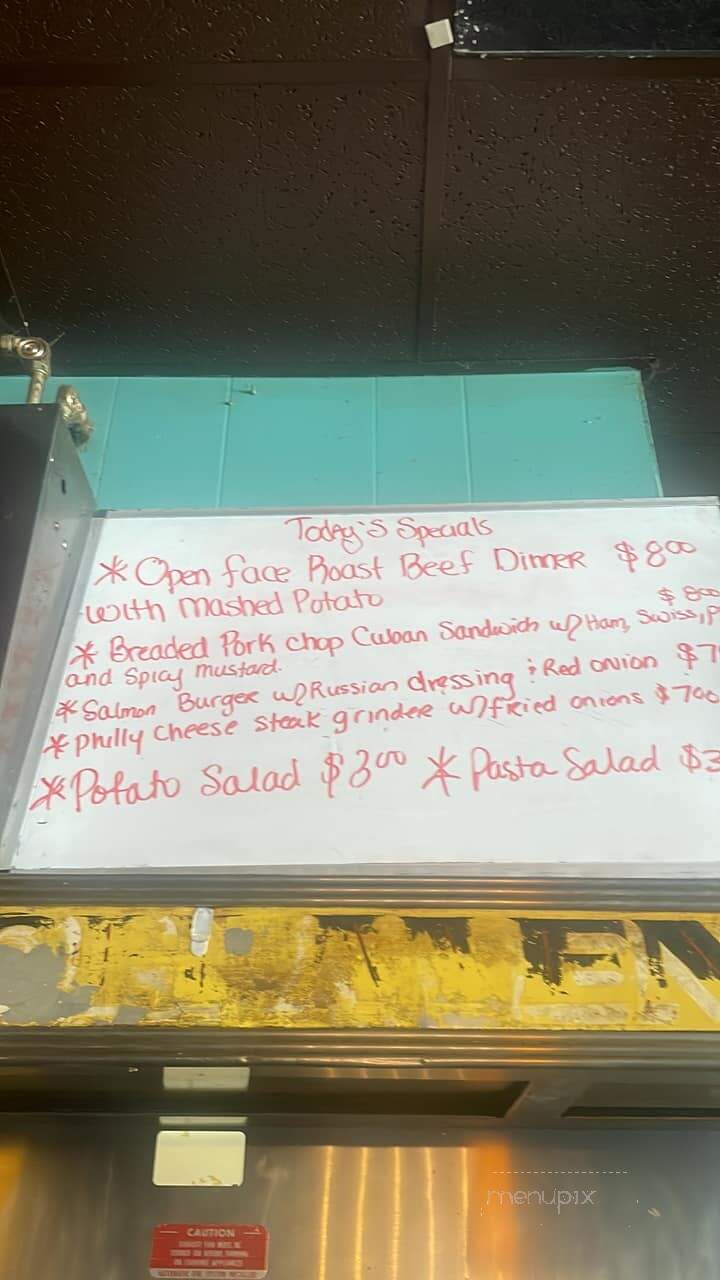 Today's Specials
* Open face Roast Beef Dinner $8.00
with Mashed Potato
$8.00
* Breaded Pork chop Cuban Sandwich w/ Ham, Swiss,
and Spicy Mustard.
* Salmon Burger w/ Russian dressing & Red onion $7
* Philly Cheese Steak grinder w/ fried onions $7.00
* Potato Salad $3.00 * Pasta Salad $3
CAUTION
menupix